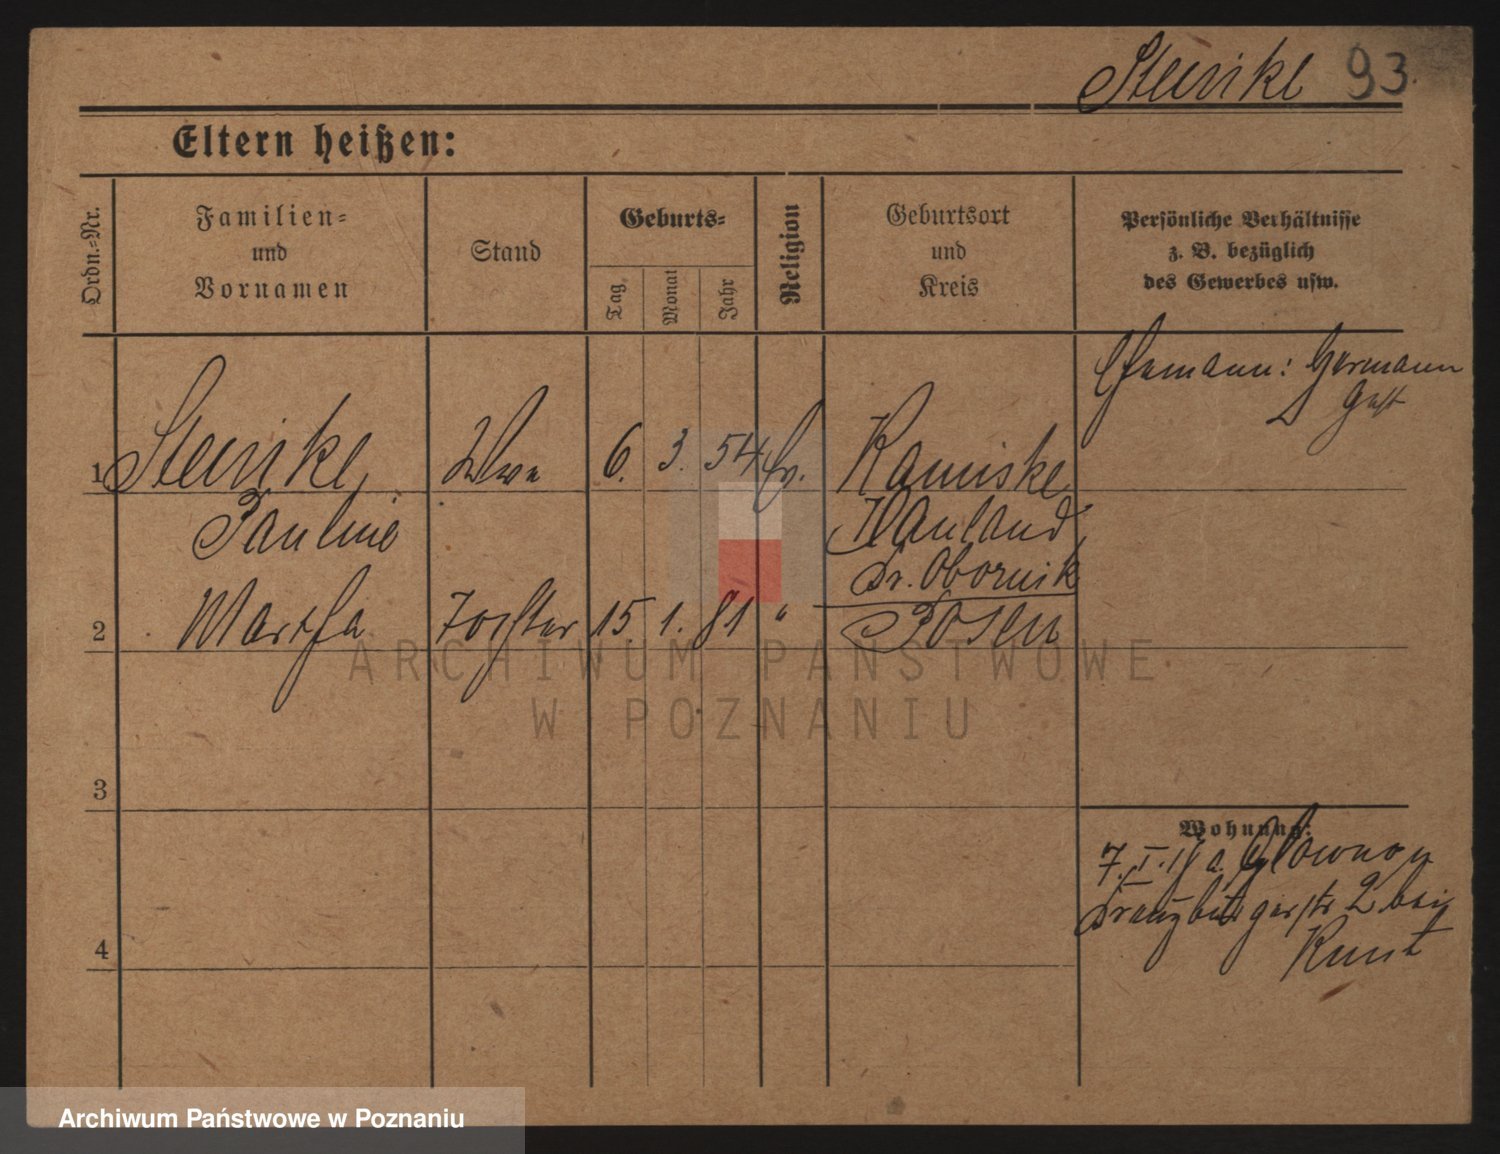 Steinke 93.
Eltern heißen:
Ordn.=Nr.
Familien=
und
Vornamen
Stand
Geburts=
Tag,
Monat
Jahr
Religion
Geburtsort
und
Kreis
Persönliche Verhältnisse
z. B. bezüglich
des Gewerbes usw.
Ehemann: Hermann
1 Steinke, Wwe 6. 3. 54 Ev. Kaminske
Pauline Hauland
Kr. Obornik
2 Martha Tochter 15. 1. 81 " Posen
3
Wohnung:
7. I. a. Glowno
2 bei
4
ARCHIWUM PAŃSTWOWE
W POZNANIU
Archiwum Państwowe w Poznaniu